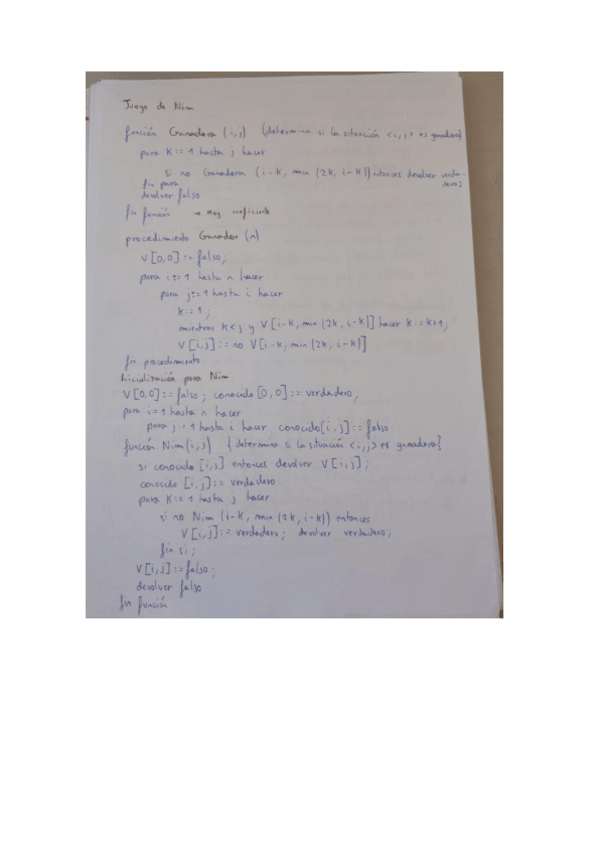 Juego de Nim
función Ganadora (i,j) {determina si la situación <i,j> es ganadora}
para K := 1 hasta j hacer
si no Ganadora (i-K, min (2k, i-K)) entonces devolver verda-
dero;
fin para
devolver falso
fin función → muy ineficiente
procedimiento Ganador (n)
V[0,0] := falso;
para i := 1 hasta n hacer
para j := 1 hasta i hacer
K := 1;
mientras K<j y V[i-K, min(2k, i-K)] hacer K := K+1;
V[i,j] := no V[i-K, min(2k, i-K)]
fin procedimiento
Inicialización para Nim
V[0,0] := falso; conocido[0,0] := verdadero;
para i=1 hasta n hacer
para j := 1 hasta i hacer conocido[i,j] := falso
función Nim(i,j) {determina si la situación <i,j> es ganadora}
si conocido [i,j] entonces devolver V[i,j];
conocido [i,j] := verdadero
para K := 1 hasta j hacer
si no Nim (i-K, min (2k, i-K)) entonces
V[i,j] := verdadero; devolver verdadero;
fin si;
V[i,j] := falso;
devolver falso
fin función